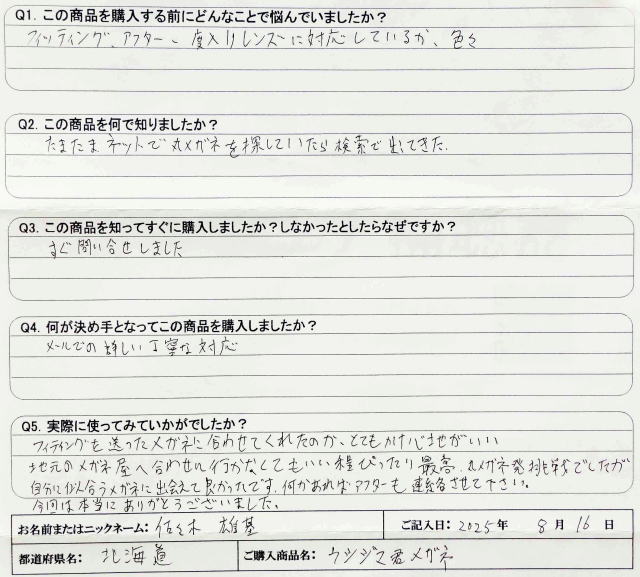 Q1. この商品を購入する前にどんなことで悩んでいましたか？
フィッティング、アフター、度入りレンズに対応しているか、色々
Q2. この商品を何で知りましたか？
たまたまネットで丸メガネを探していたら検索で出てきた.
Q3. この商品を知ってすぐに購入しましたか？しなかったとしたらなぜですか？
すぐ問い合せしました
Q4. 何が決め手となってこの商品を購入しましたか？
メールでの詳しい丁寧な対応
Q5. 実際に使ってみていかがでしたか？
フィティングを送ったメガネに合わせてくれたのか、とてもかけ心地がいい
地元のメガネ屋へ合わせに行かなくてもいい程ぴったり最高.丸メガネ発挑戦でしたが
自分に似合うメガネに出会えて良かったです。何かあればアフターも連絡させて下さい。
今回は本当にありがとうございました。
お名前またはニックネーム: 佐々木 雄基
ご記入日: 2025年 8月 16日
都道府県名: 北海道
ご購入商品名: ウシジマ君メガネ